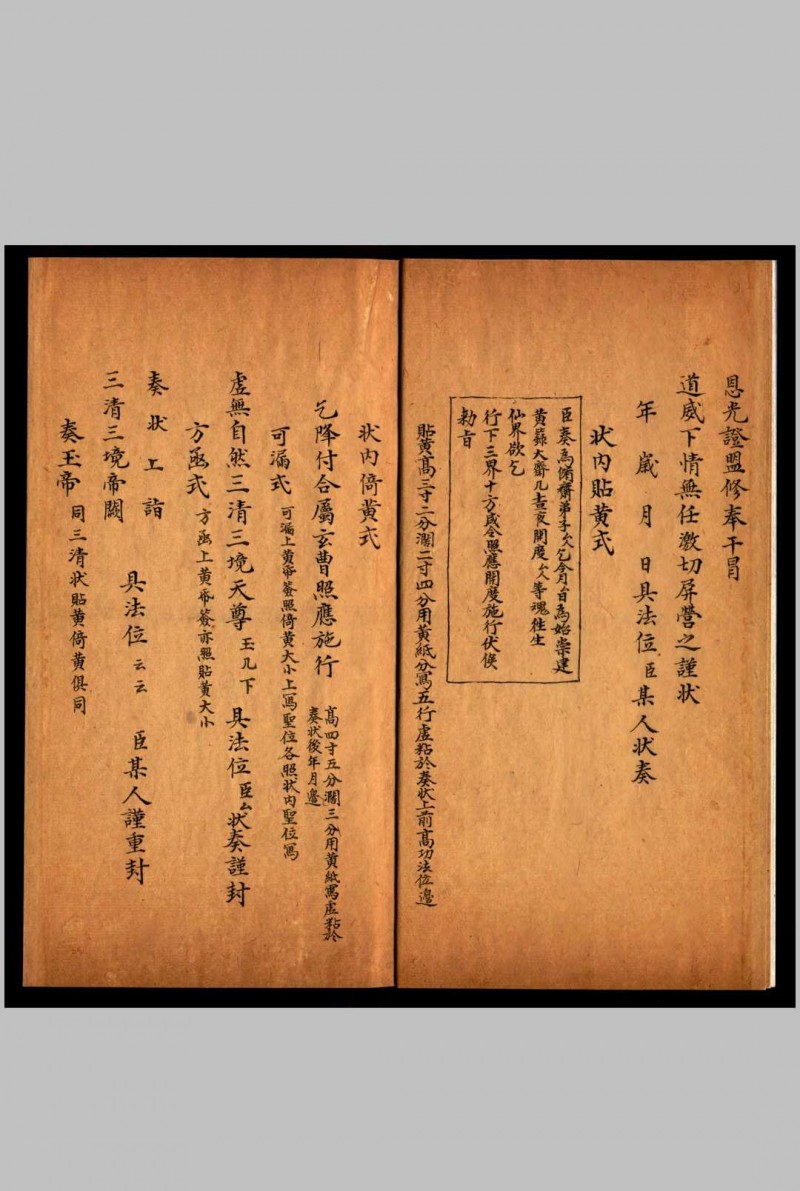 恩光證盟修奉干冒
道威下情無任激切屏營之謹状
年歲月日具法位臣某人状奏
状内貼黄式
臣奏為脩齋弟子厶乞今月日為始崇建
黄籙大齋几晝夜開度厶等魂徃生
仙界欲乞
行下三界十方咸令照應開度施行伏候
勅旨
貼黄高三寸二分濶二寸四分用黄紙分寫五行虚粘於奏状上前高功法位邊
状内倚黄式
乞降付合屬玄曹照應施行 高四寸五分濶三分用黄紙寫虚粘於
奏状後年月邊
可漏式 可漏上黄帋簽照倚黄大小上寫聖位各照状内聖位寫
虚無自然三清三境天尊 玉几下 具法位臣厶状奏謹封
方函式 方函上黄帋簽亦照貼黄大小
奏状上詣
三清三境帝闕 具法位云云 臣某人謹重封
奏玉帝 同三清状貼黄倚黄俱同